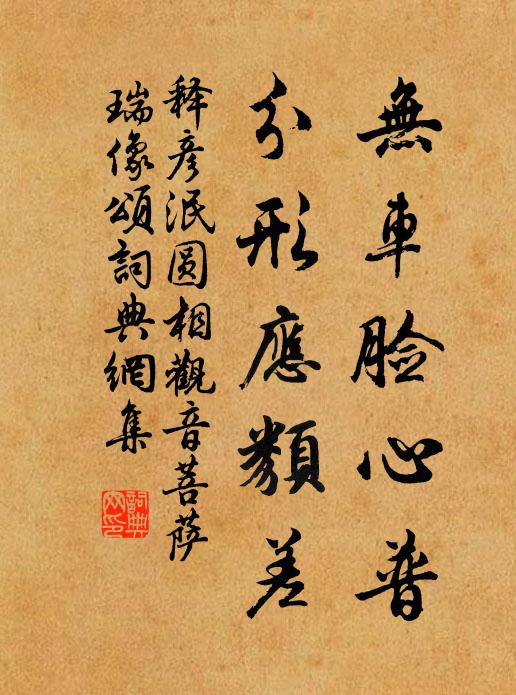 無車脸心普
分形應類差
释彦泯圆相觀音菩萨
瑞像頌詞典網集
詞典